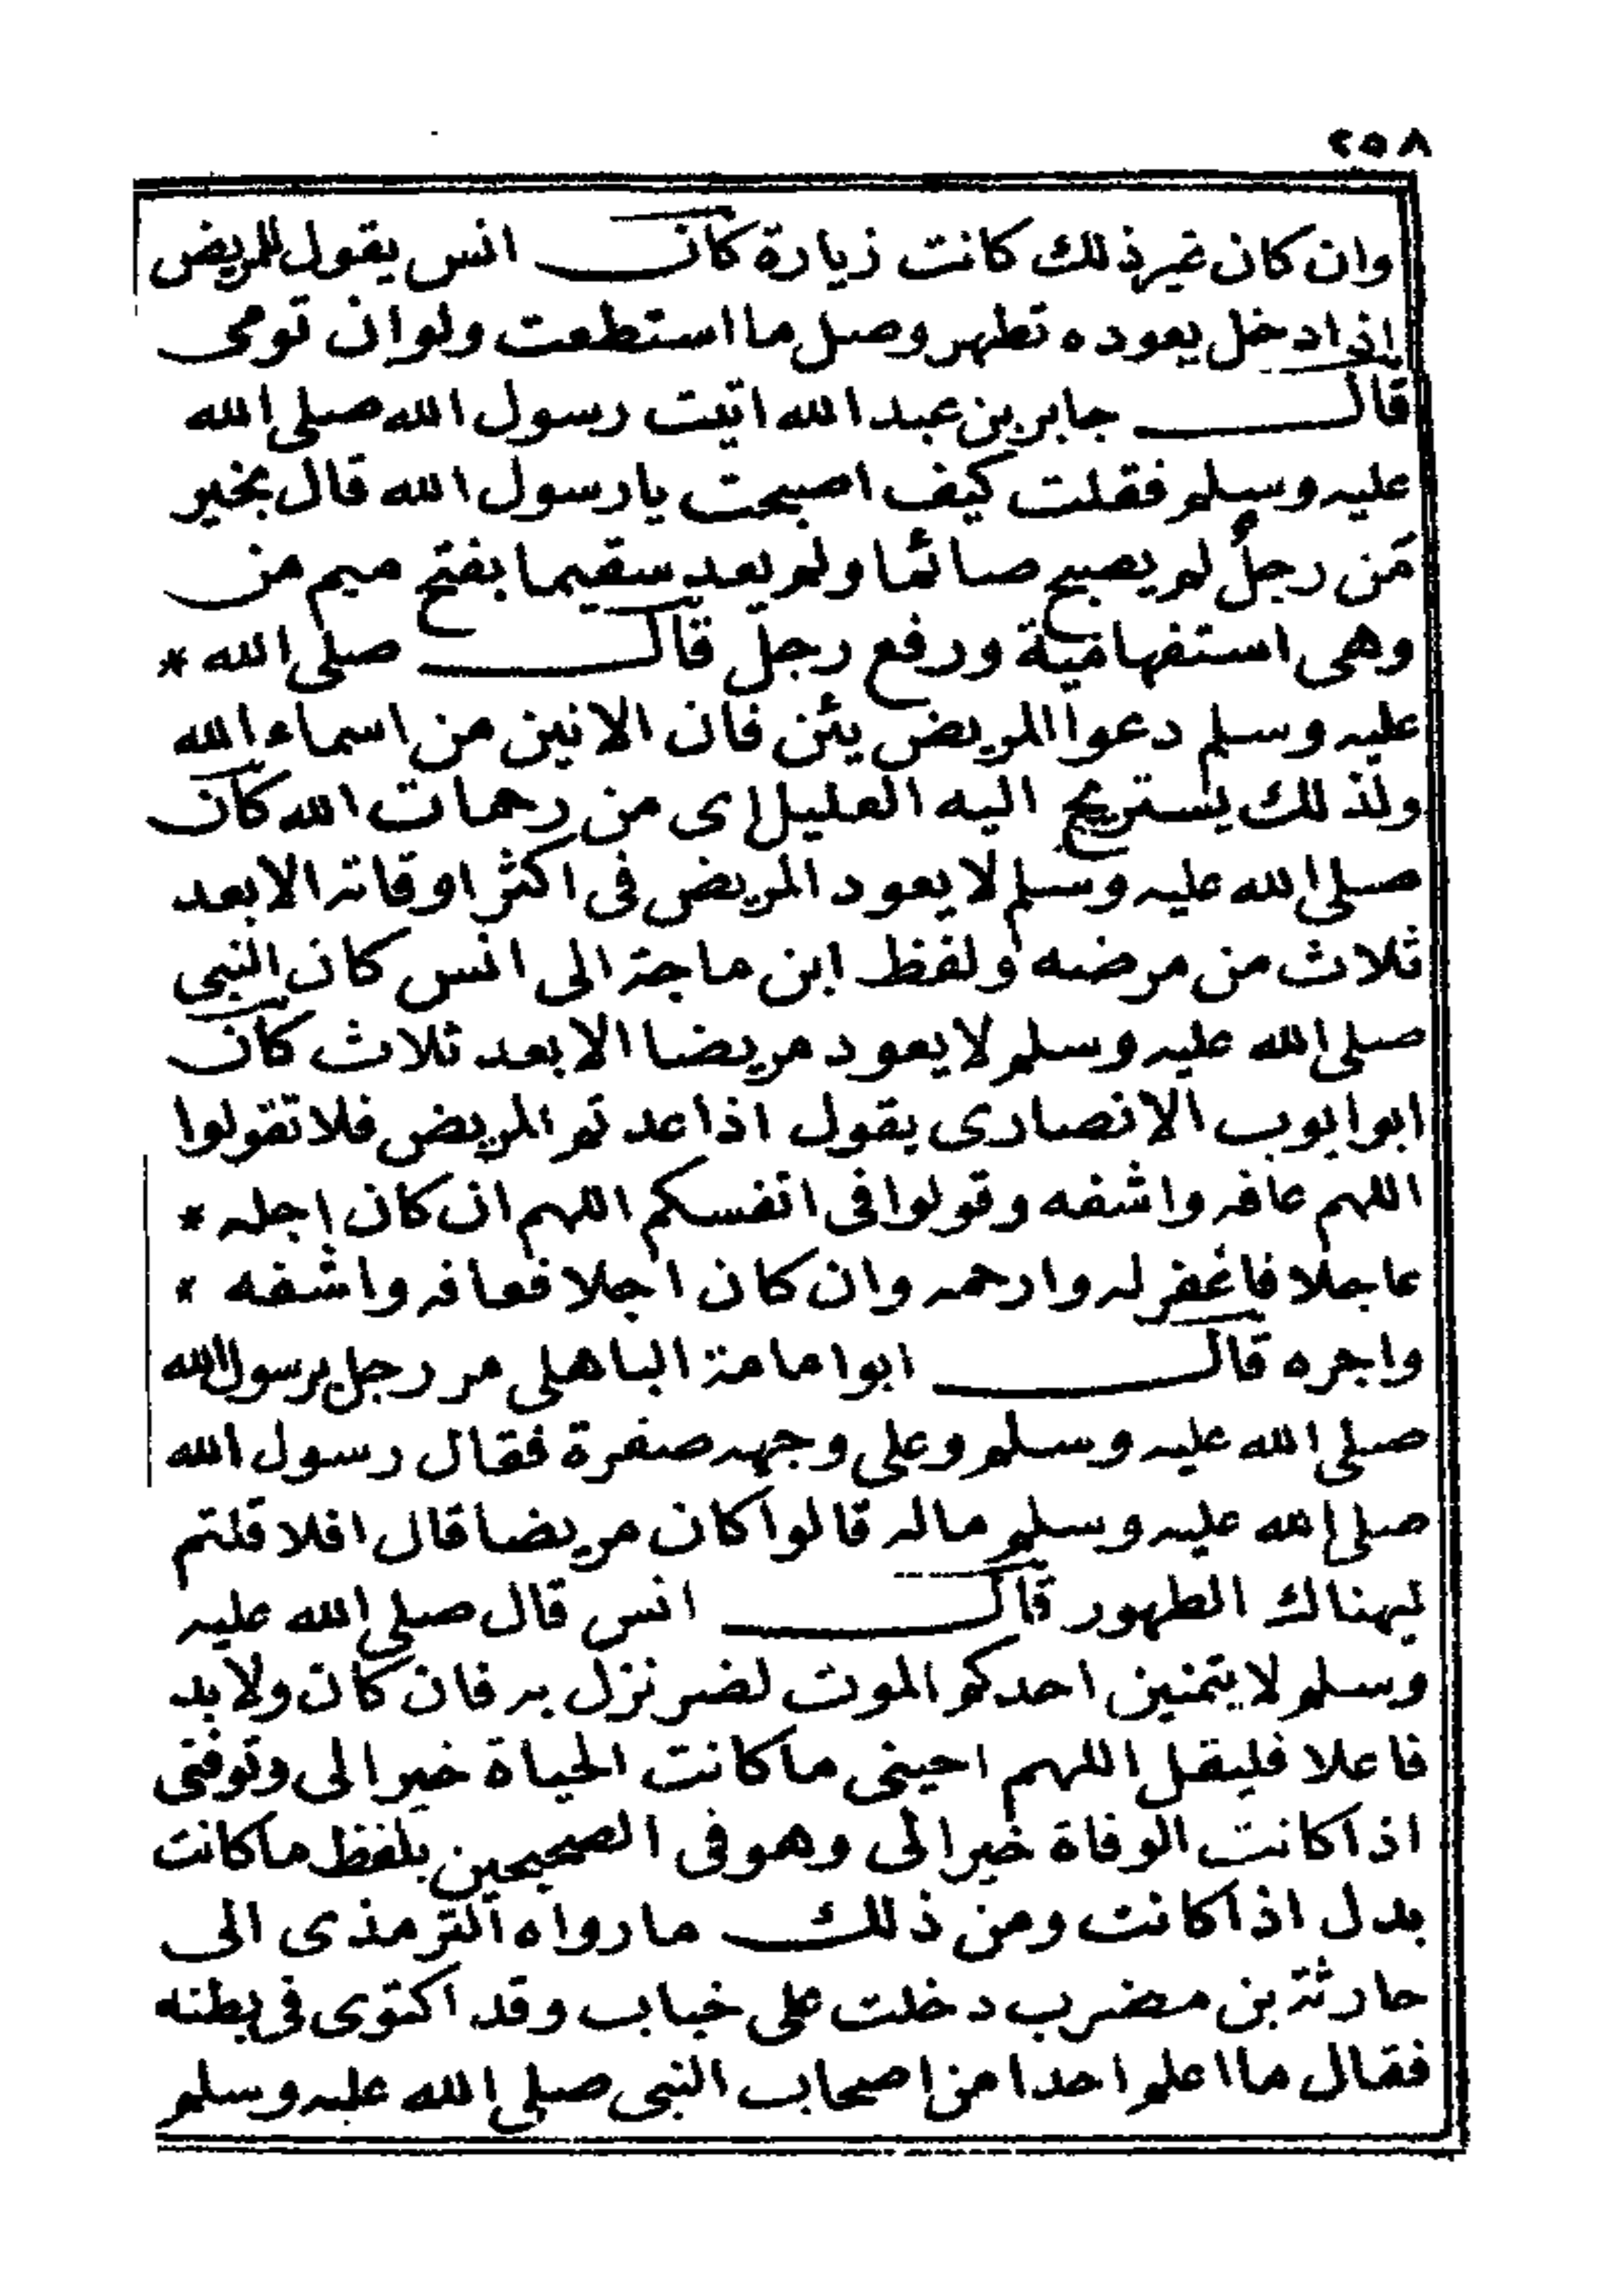 ٢٥٨
وان كان غير ذلك كانت زيارة كان انس يقول للمريض
اذا دخل يعوده تطهر وصل ما استطعت ولو ان تومى
قال جابر بن عبد الله اتيت رسول الله صلى الله
عليه وسلم فقلت كيف اصبحت يا رسول الله قال بخير
مَن رجلٌ لم يصبح صائما ولم يعد سقيما بفتح ميم من
وهى استفهامية ورفع رجل قال صلى الله *
عليه وسلم دعوا المريض يئن فان الانين من اسماء الله
ولذلك يستريح اليه العليل اى من رحمات الله كان
صلى الله عليه وسلم لا يعود المريض فى اكثر اوقاته الا بعد
ثلاث من مرضه ولفظ ابن ماجة الى انس كان النبى
صلى الله عليه وسلم لا يعود مريضا الا بعد ثلاث كان
ابو ايوب الانصارى يقول اذا عدتم المريض فلا تقولوا
اللهم عافه واشفه وقولوا فى انفسكم اللهم ان كان اجله *
عاجلا فاغفر له وارحمه وان كان اجلا فعافه واشفه *
واجره قال ابو امامة الباهلى مر رجل برسول الله
صلى الله عليه وسلم وعلى وجهه صفرة فقال رسول الله
صلى الله عليه وسلم ماله قالوا كان مريضا قال افلا قلتم
ليهناك الطهور قال انس قال صلى الله عليه
وسلم لا يتمنين احدكم الموت لضر نزل به فان كان ولا بد
فاعلا فليقل اللهم احينى ما كانت الحياة خيرا لى وتوفنى
اذا كانت الوفاة خيرا لى وهو فى الصحيحين بلفظ ما كانت
بدل اذا كانت ومن ذلك ما رواه الترمذى الى
حارثة بن مضرب دخلت على خباب وقد اكتوى فى بطنه
فقال ما اعلم احدا من اصحاب النبى صلى الله عليه وسلم